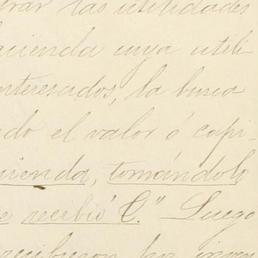 rar las utilidades
cienda cuya utili
nteresados, la busca
ndo el valor ó capi-
ienda, tomándolo
e recibió C." Luego